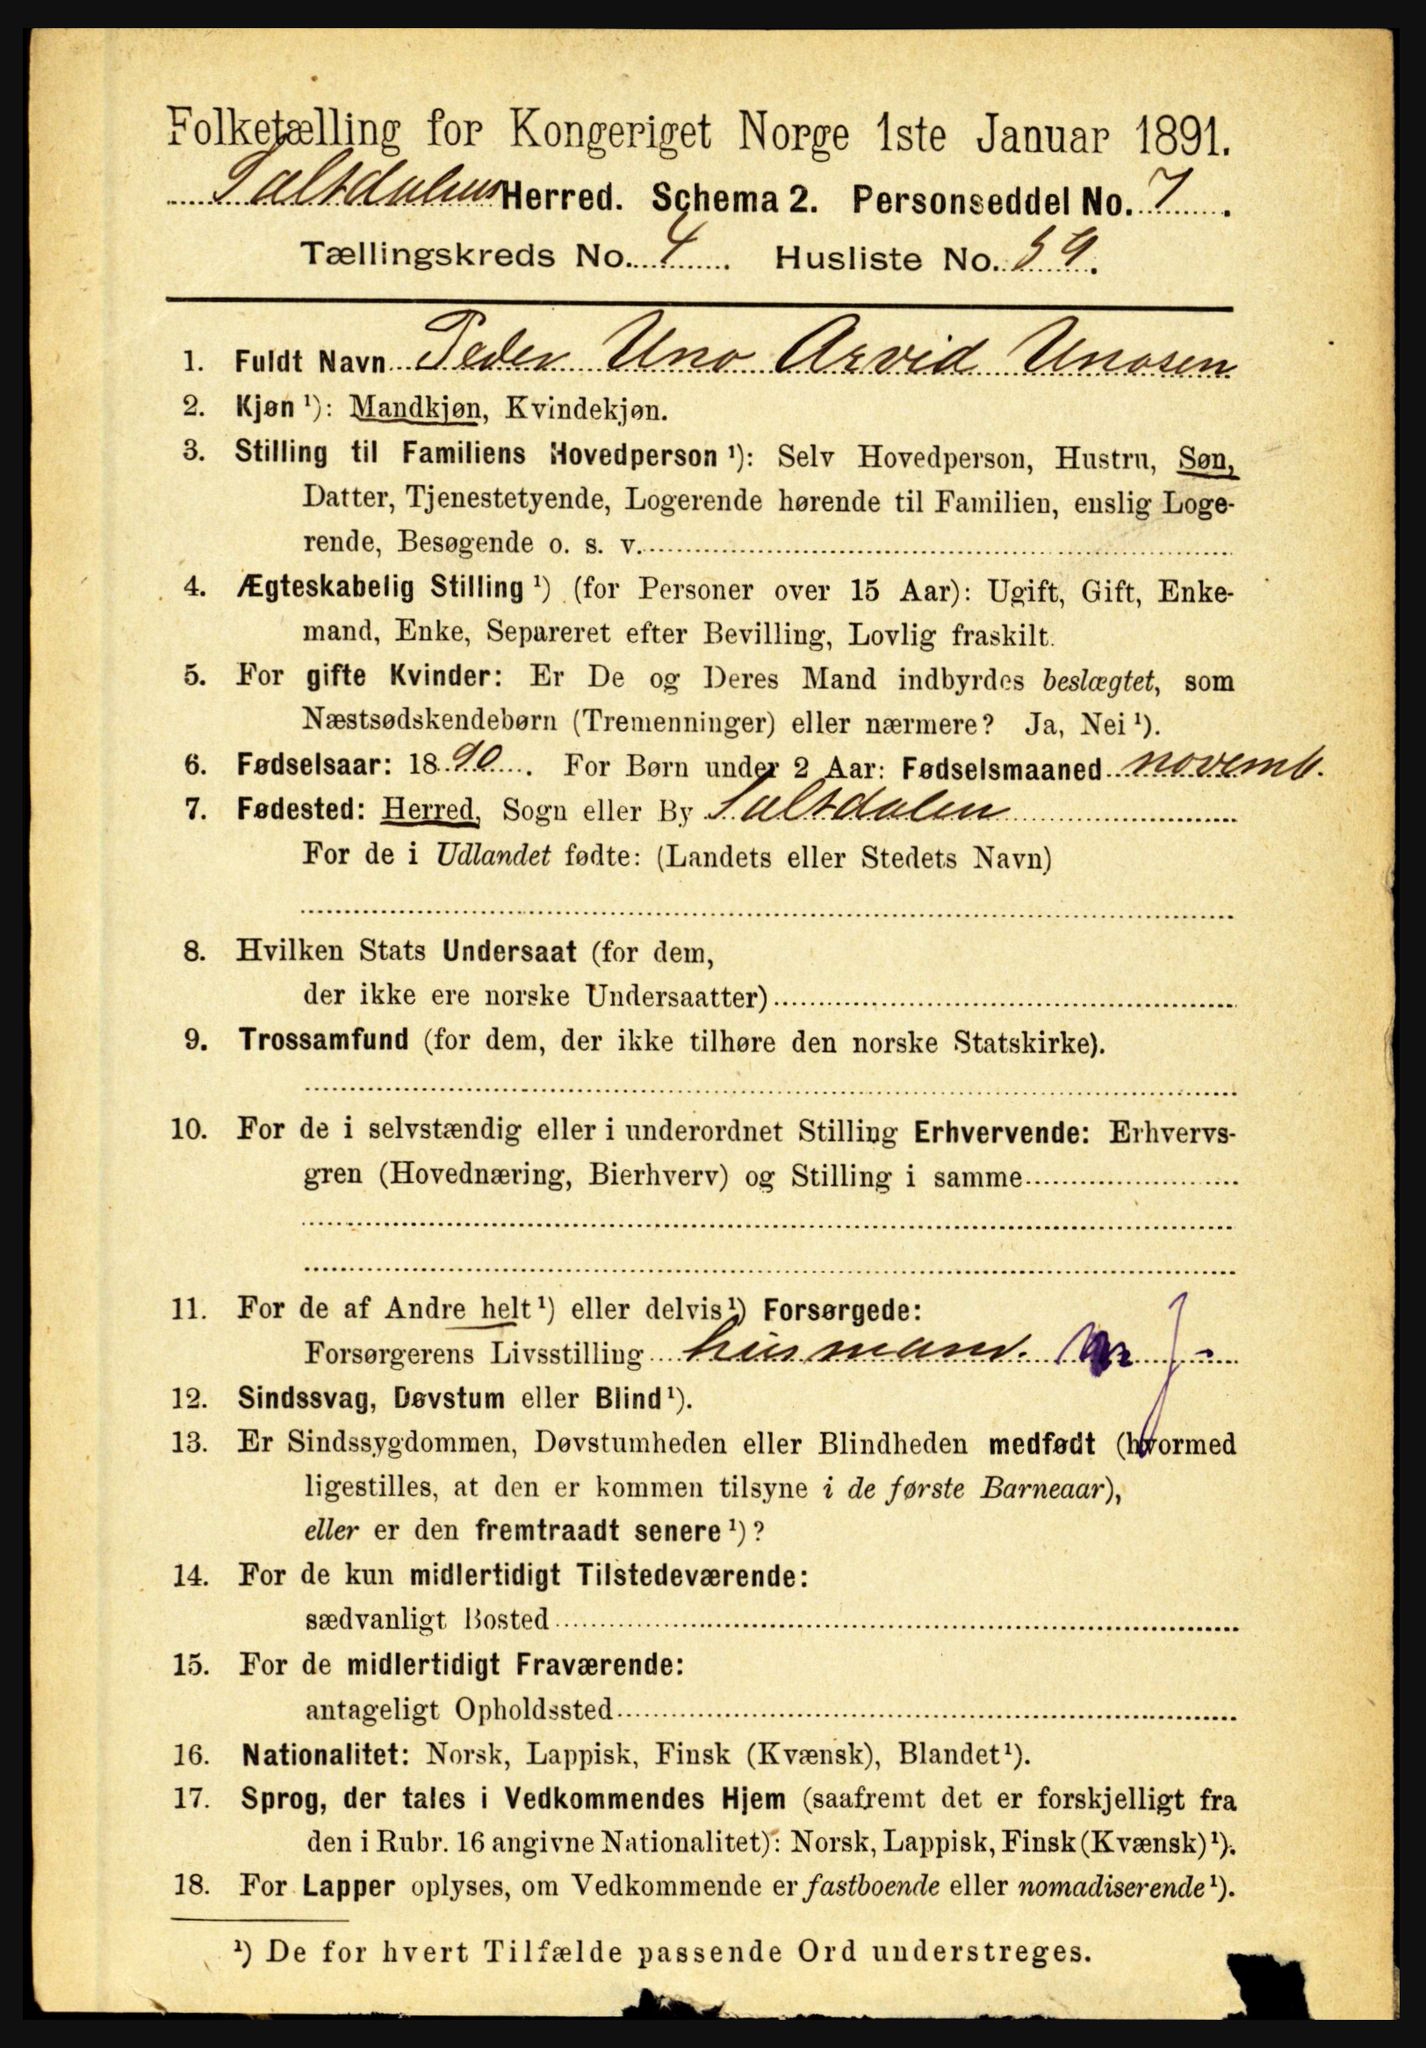 Folketælling for Kongeriget Norge 1ste Januar 1891.
Saltdalens Herred. Schema 2. Personseddel No. 7.
Tællingskreds No. 4. Husliste No. 59.
1. Fuldt Navn Peder Uno Arvid Unosen
2. Kjøn ¹): Mandkjøn, Kvindekjøn.
3. Stilling til Familiens Hovedperson ¹): Selv Hovedperson, Hustru, Søn,
Datter, Tjenestetyende, Logerende hørende til Familien, enslig Loge-
rende, Besøgende o. s. v.
4. Ægteskabelig Stilling ¹) (for Personer over 15 Aar): Ugift, Gift, Enke-
mand, Enke, Separeret efter Bevilling, Lovlig fraskilt.
5. For gifte Kvinder: Er De og Deres Mand indbyrdes beslægtet, som
Næstsødskendebørn (Tremenninger) eller nærmere? Ja, Nei ¹).
6. Fødselsaar: 1890. For Børn under 2 Aar: Fødselsmaaned novemb.
7. Fødested: Herred, Sogn eller By Saltdalen
For de i Udlandet fødte: (Landets eller Stedets Navn)
8. Hvilken Stats Undersaat (for dem,
der ikke ere norske Undersaatter)
9. Trossamfund (for dem, der ikke tilhøre den norske Statskirke).
10. For de i selvstændig eller i underordnet Stilling Erhvervende: Erhvervs-
gren (Hovednæring, Bierhverv) og Stilling i samme
11. For de af Andre helt ¹) eller delvis ¹) Forsørgede:
Forsørgerens Livsstilling husmand.
12. Sindssvag, Døvstum eller Blind ¹).
13. Er Sindssygdommen, Døvstumheden eller Blindheden medfødt (hvormed
ligestilles, at den er kommen tilsyne i de første Barneaar),
eller er den fremtraadt senere ¹)?
14. For de kun midlertidigt Tilstedeværende:
sædvanligt Bosted
15. For de midlertidigt Fraværende:
antageligt Opholdssted
16. Nationalitet: Norsk, Lappisk, Finsk (Kvænsk), Blandet ¹).
17. Sprog, der tales i Vedkommendes Hjem (saafremt det er forskjelligt fra
den i Rubr. 16 angivne Nationalitet): Norsk, Lappisk, Finsk (Kvænsk) ¹).
18. For Lapper oplyses, om Vedkommende er fastboende eller nomadiserende ¹).
¹) De for hvert Tilfælde passende Ord understreges.